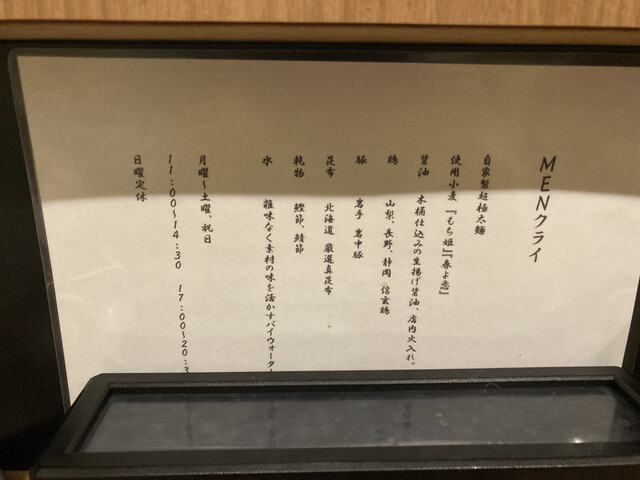 MENクライ
自家製超極太麺
使用小麦 『もち姫』『春よ恋』
醤油 木桶仕込みの生揚げ醤油、店内火入れ。
鶏 山梨、長野、静岡 信玄鶏
豚 岩手 岩中豚
昆布 北海道 厳選真昆布
乾物 鰹節、鯖節
水 雑味なく素材の味を活かすパイウォーター
月曜〜土曜、祝日
11:00〜14:30 17:00〜20:3
日曜定休